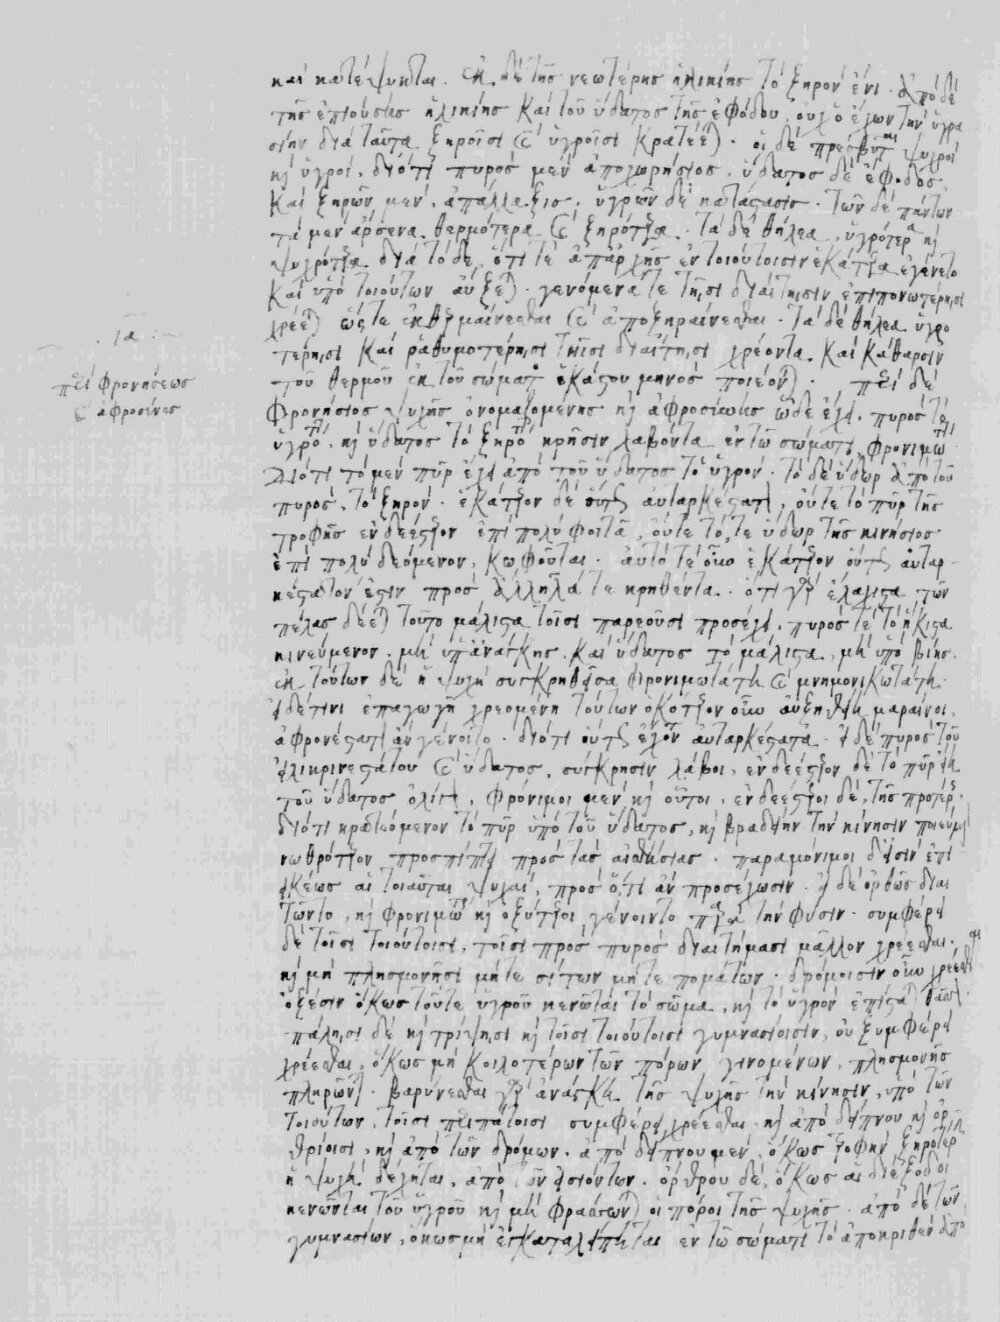 καὶ κατέψυκται. ἐκ δὲ τῆς νεωτέρης ἡλικίης τὸ ξηρὸν ἔνι. ἀπὸ δὲ
τῆς ἐπιούσης ἡλικίης καὶ τοῦ ὕδατος τῆς ἐφόδου, τὴν ὑγρα
σίην διὰ ταῦτα ξηροῖσι καὶ ὑγροῖσι κρατέεται. οἱ δὲ πρεσβῦται ψυχροὶ
καὶ ὑγροί, διότι πυρὸς μὲν ἀποχωρήσιος, ὕδατος δὲ ἔφοδος
καὶ ξηρῶν μὲν, ἀπάλλαξις. ὑγρῶν δὲ κατάστασις. τῶν δὲ πάντων
τὰ μὲν ἄρσενα θερμότερα καὶ ξηρότερα. τὰ δὲ θήλεα, ὑγρότερα καὶ
ψυχρότερα διὰ τόδε, ὅτι τε ἀπ' ἀρχῆς ἐν τοιούτοισιν ἑκάτερα ἐγένετο
καὶ ὑπὸ τοιούτων αὔξεται. γενόμενά τε τῇσι διαίτῃσιν ἐπιπονωτέρῃσι
χρέεται ὥστε ἐκθερμαίνεσθαι καὶ ἀποξηραίνεσθαι. τὰ δὲ θήλεα ὑγρο
τέρῃσι καὶ ῥᾳθυμοτέρῃσι τῇσι διαίτῃσι χρέονται καὶ κάθαρσιν
τοῦ θερμοῦ ἐκ τοῦ σώματος ἑκάστου μηνὸς ποιέονται. περὶ δὲ
ια
περὶ φρονήσεως
καὶ ἀφροσύνης
φρονήσιος ψυχῆς ὀνομαζομένης καὶ ἀφροσύνης ὧδε ἔχει. πυρὸς τὸ
ὑγρότατον, καὶ ὕδατος τὸ ξηρότατον κρῆσιν λαβόντα ἐν τῷ σώματι, φρονιμώτατον.
διότι τὸ μὲν πῦρ ἔχει ἀπὸ τοῦ ὕδατος τὸ ὑγρόν. τὸ δὲ ὕδωρ ἀπὸ τοῦ
πυρὸς, τὸ ξηρόν. ἑκάτερον δὲ οὕτως αὐταρκέστατον, οὔτε τὸ πῦρ τῆς
τροφῆς ἐνδεέστερον ἐπὶ πολὺ φοιτᾷ, οὔτε τό, τε ὕδωρ τῆς κινήσιος
ἐπὶ πολὺ δεόμενον, κωφοῦται. αὐτό τε οὖν ἑκάτερον οὕτως αὐταρ-
κέστατόν ἐστιν πρὸς ἄλληλά τε κρηθέντα. ὅτι γὰρ ἐλάχιστα τῶν
πέλας δέεται τοῦτο μάλιστα τοῖσι παρεοῦσι προσέχει. πυρός τε τὸ ἥκιστα
κινεύμενον. μὴ ὑπ' ἀνάγκης. καὶ ὕδατος τὸ μάλιστα, μὴ ὑπὸ βίης.
ἐκ τούτων δὲ ἡ ψυχὴ συγκρηθεῖσα φρονιμωτάτη καὶ μνημονικωτάτη.
εἰ δέ τινι ἐπαγωγῇ χρεομένη τούτων ὁκότερον οὖν αὐξηθείη μαραίνοι,
ἀφρονέστατον ἂν γένοιτο. διότι οὕτως ἔχον αὐταρκέστατα. εἰ δὲ πυρὸς τοῦ
εἰλικρινεστάτου καὶ ὕδατος, σύγκρησιν λάβοι, ἐνδεέστερον δὲ τὸ πῦρ εἴη
τοῦ ὕδατος ὀλίγον, φρόνιμοι μὲν καὶ οὗτοι, ἐνδεέστεροι δὲ, τῆς προτέρης.
διότι κρατεόμενον τὸ πῦρ ὑπὸ τοῦ ὕδατος, καὶ βραδείην τὴν κίνησιν ποιεύμενον
νωθρότερον προσπίπτει πρὸς τὰς αἰσθήσιας. παραμόνιμοι δ' εἰσὶν ἐπι
εικέως αἱ τοιαῦται ψυχαί, πρὸς ὅ,τι ἂν προσέχωσιν. εἰ δὲ ὀρθῶς διαι
τῶντο, καὶ φρονιμώτεροι καὶ ὀξύτεροι γένοιντο παρὰ τὴν φύσιν. συμφέρει
δὲ τοῖσι τοιούτοισι, τοῖσι πρὸς πυρὸς διαιτήμασι μᾶλλον χρέεσθαι.
καὶ μὴ πλησμονῇσι μήτε σίτων μήτε πομάτων. δρόμοισιν οὖν χρέεσθαι
ὀξέσιν ὅκως τοῦτε ὑγροῦ κενῶται τὸ σῶμα, καὶ τὸ ὑγρὸν ἐπίσταται θᾶσσον.
πάλῃσι δὲ καὶ τρίψησι καὶ τοῖσι τοιούτοισι γυμνασίοισιν, οὐ ξυμφέρει
χρέεσθαι, ὅκως μὴ κοιλοτέρων τῶν πόρων γινομένων, πλησμονῆς
πληρῶνται. βαρύνεσθαι γὰρ ἀνάγκη τῆς ψυχῆς τὴν κίνησιν, ὑπὸ τῶν
τοιούτων, τοῖσι περιπάτοισι συμφέρει χρέεσθαι, καὶ ἀπὸ δείπνου καὶ ὀρ
θρίοισι, καὶ ἀπὸ τῶν δρόμων. ἀπὸ δείπνου μὲν, ὅκως τροφὴν ξηροτέρην
ἡ ψυχὴ δέχηται, ἀπὸ τῶν εἰσιόντων. ὄρθρου δὲ, ὅκως αἱ διέξοδοι
κενῶνται τοῦ ὑγροῦ καὶ μὴ φράσσωνται οἱ πόροι τῆς ψυχῆς. ἀπὸ δὲ τῶν
γυμνασίων, ὅκως μὴ ἐγκαταλείπηται ἐν τῷ σώματι τὸ ἀποκριθὲν ἀπὸ